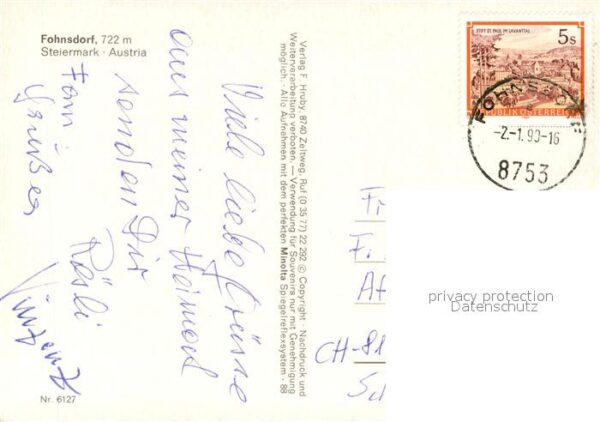 Fohnsdorf, 722 m
Steiermark · Austria
Viele liebe Grüsse
aus meiner Heimat
senden Dir
Rösli
Vinzenz
Fam
Nr. 6127
Verlag F. Hruby, 8740 Zeltweg, Ruf (0 35 77) 22 292 © Copyright · Nachdruck und
Weiterverarbeitung verboten. — Verwendung für Souvenirs nur mit Genehmigung
möglich. · Alle Aufnahmen mit dem perfekten Minolta Spiegelreflexsystem · 88
STIFT ST. PAUL IM LAVANTTAL
5s
REPUBLIK ÖSTERREICH
FOHNSDORF
-2.-1.90-16
8753
Fr
F.
CH-81
privacy protection
Datenschutz